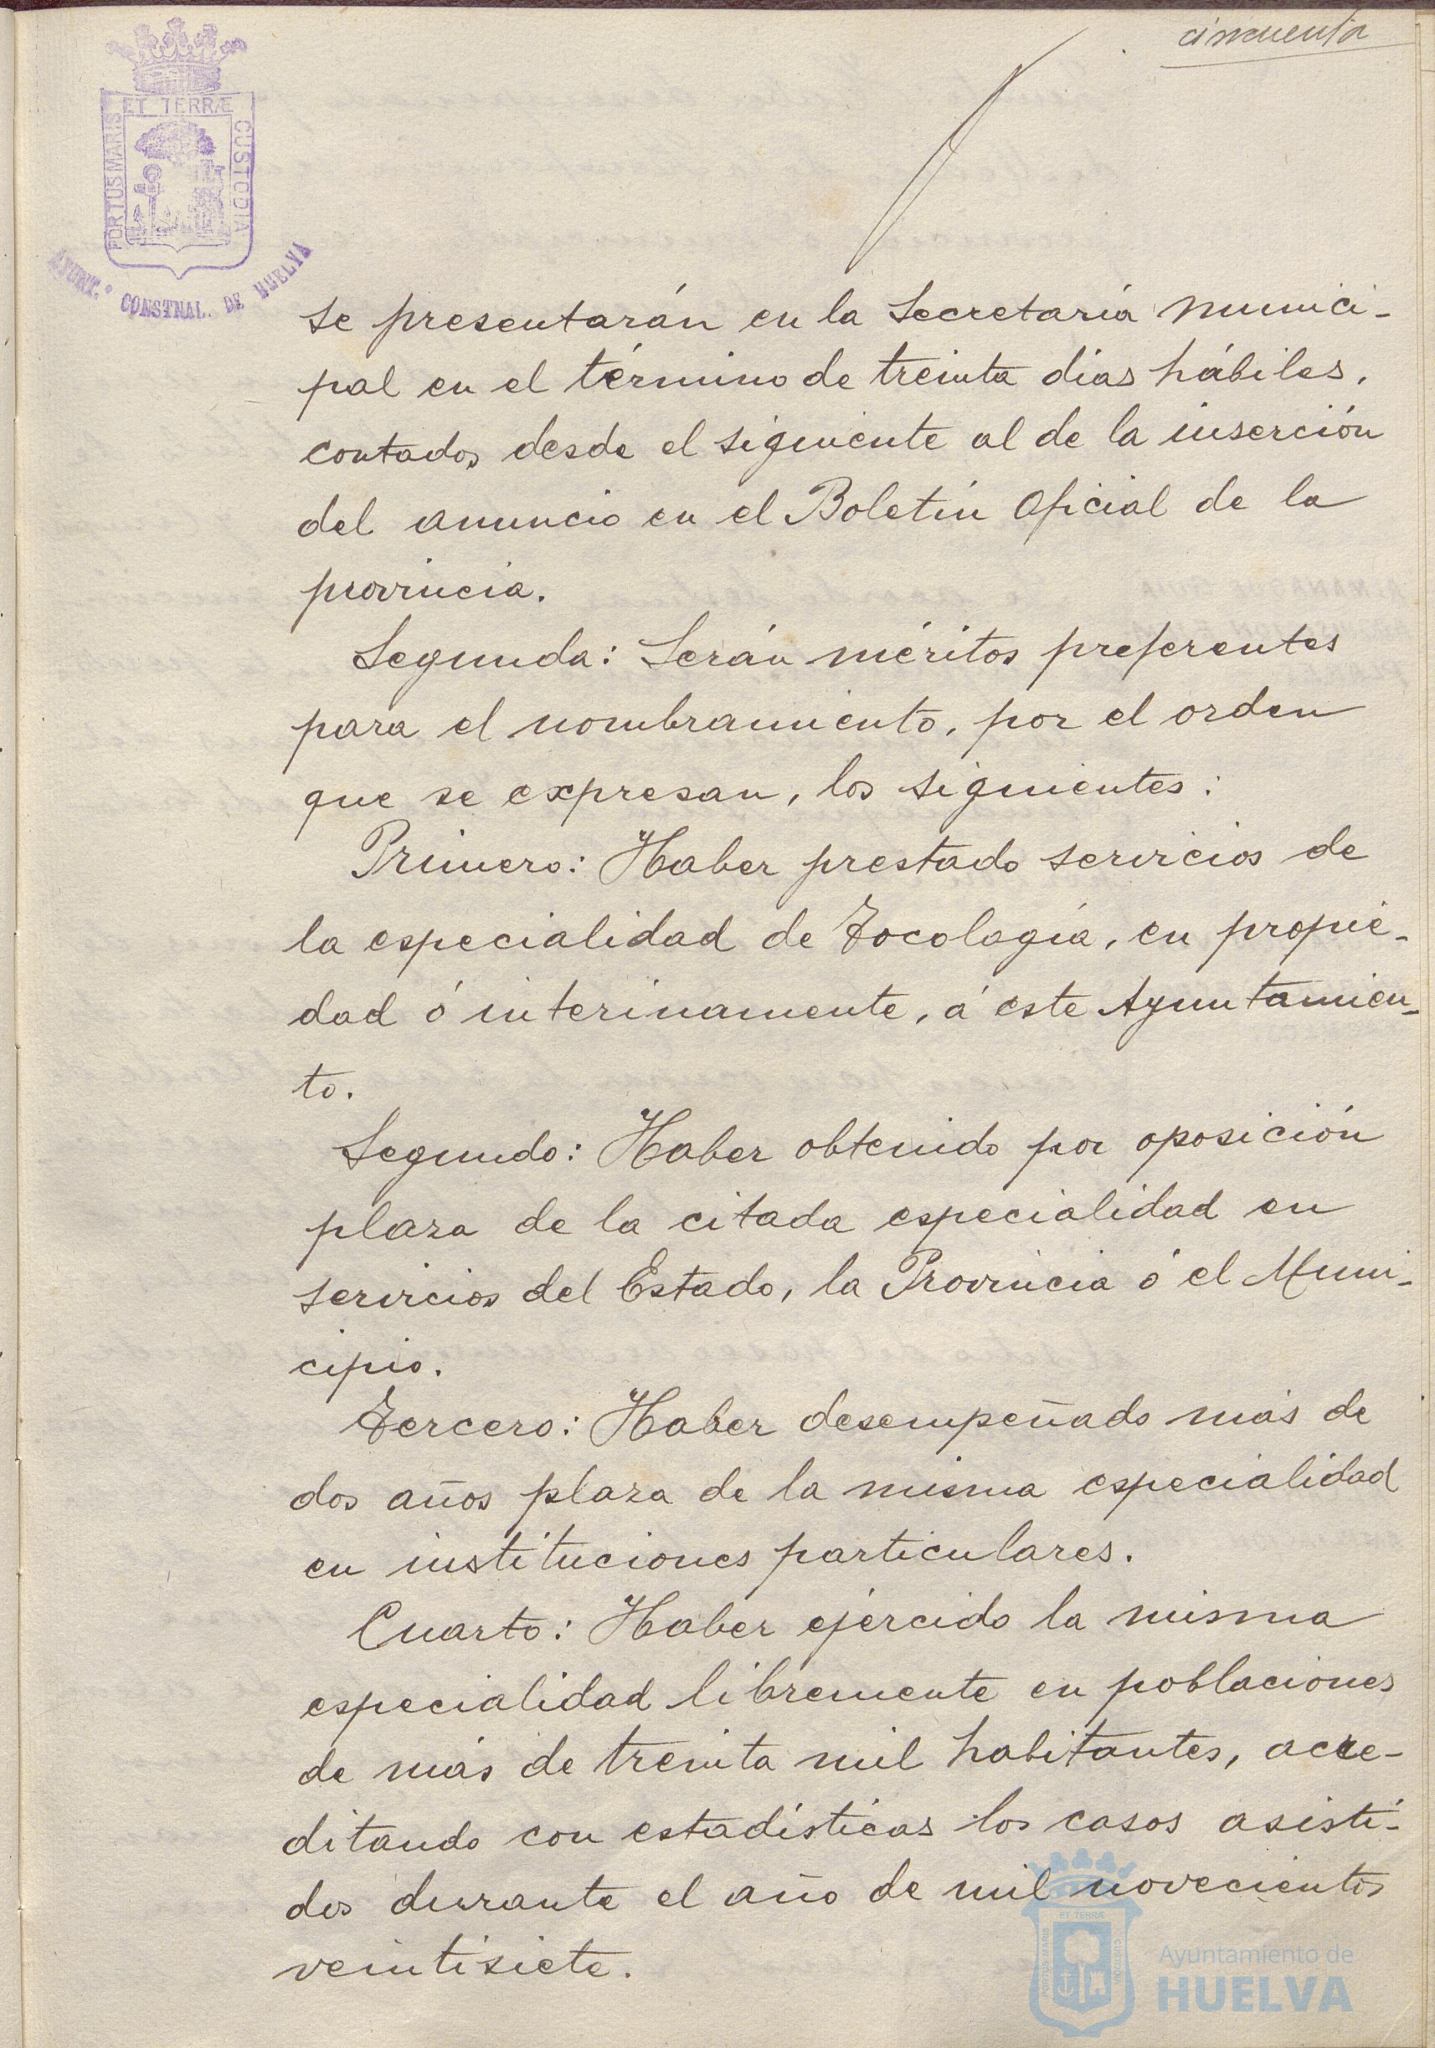 cincuenta
ET TERRÆ
PORTUS MARIS
CUSTODIA
AYUNT.º CONSTNAL. DE HUELVA
se presentarán en la Secretaría munici-
pal en el término de treinta días hábiles,
contados desde el siguiente al de la inserción
del anuncio en el Boletín Oficial de la
provincia.
Segunda: Serán méritos preferentes
para el nombramiento, por el orden
que se expresan, los siguientes:
Primero: Haber prestado servicios de
la especialidad de Tocología, en propie-
dad ó interinamente, á este Ayuntamien-
to.
Segundo: Haber obtenido por oposición
plaza de la citada especialidad en
servicios del Estado, la Provincia ó el Muni-
cipio.
Tercero: Haber desempeñado más de
dos años plaza de la misma especialidad
en instituciones particulares.
Cuarto: Haber ejercido la misma
especialidad libremente en poblaciones
de más de treinta mil habitantes, acre-
ditando con estadísticas los casos asisti-
dos durante el año de mil novecientos
veintisiete.
ET TERRÆ
PORTUS MARIS
CUSTODIA
Ayuntamiento de
HUELVA